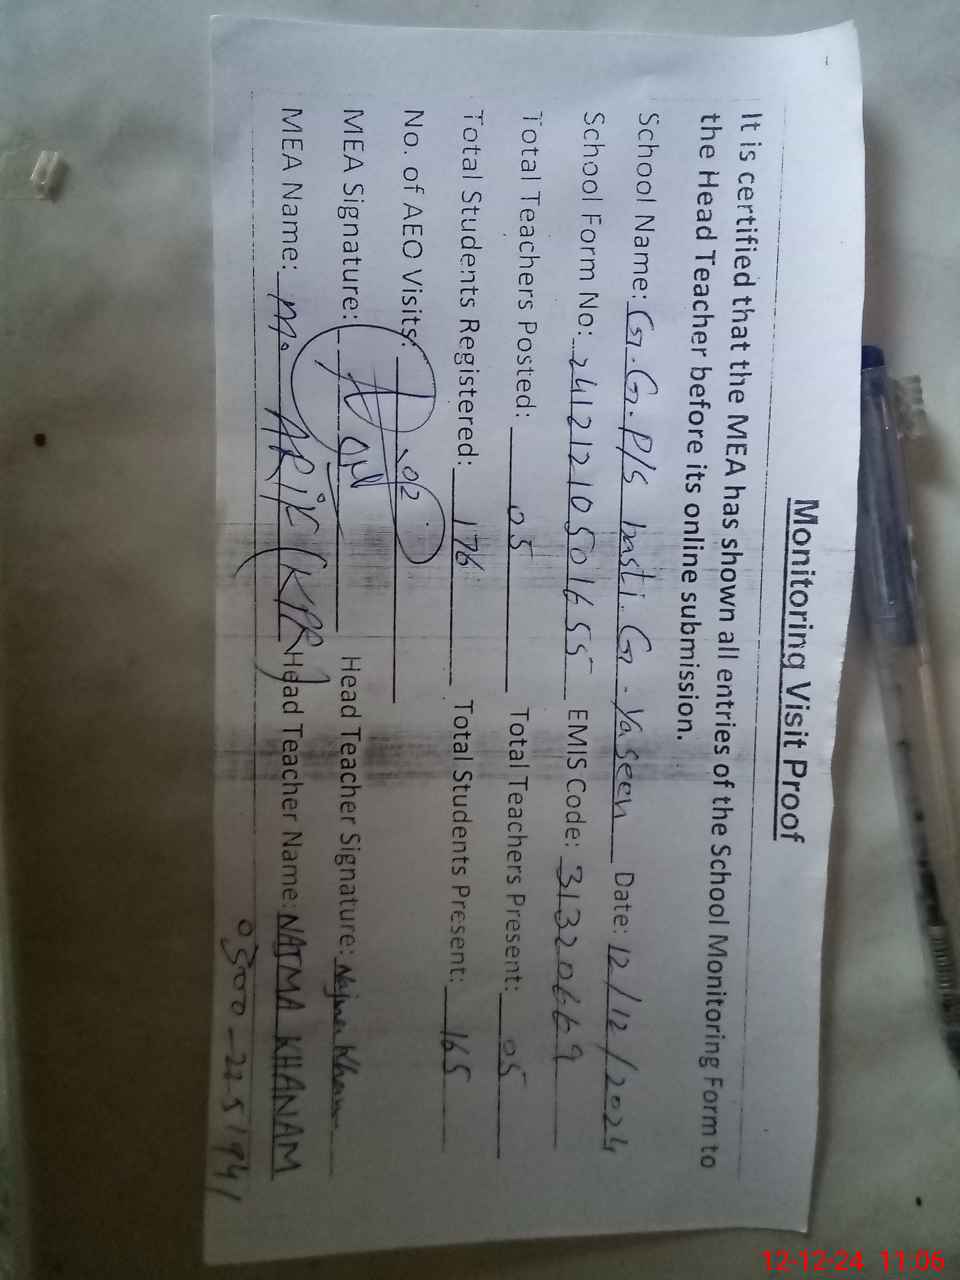 Monitoring Visit Proof
It is certified that the MEA has shown all entries of the School Monitoring Form to
the Head Teacher before its online submission.
School Name: G.G.P/S basti. G. Yaseen Date: 12/12/2024
School Form No: 24121210501655 EMIS Code: 31320669
Total Teachers Posted: 05 Total Teachers Present: 05
Total Students Registered: 176 Total Students Present: 165
No. of AEO Visits: 02
MEA Signature: Head Teacher Signature: Najma Khanam
MEA Name: M. ARIF (KPR) Head Teacher Name: NAJMA KHANAM
0300-2251941
12-12-24 11:06